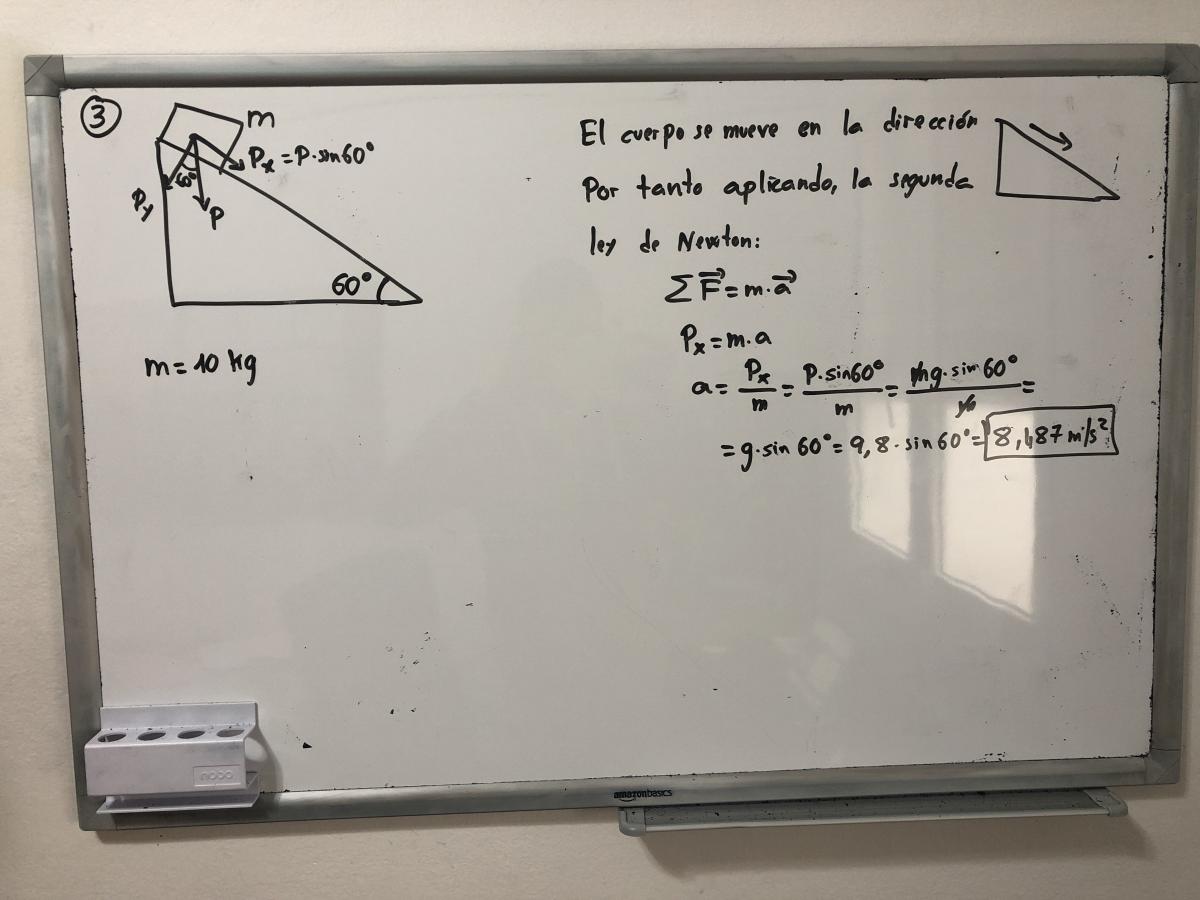 3
m
Px = P·sin60°
60°
Py
P
60°
m = 10 kg
El cuerpo se mueve en la dirección
Por tanto aplicando, la segunda
ley de Newton:
∑F⃗ = m·a⃗
Px = m·a
a = Px/m = P·sin60°/m = mg·sin60°/m =
= g·sin 60° = 9,8·sin 60° = 8,487 m/s²
nobo
amazonbasics